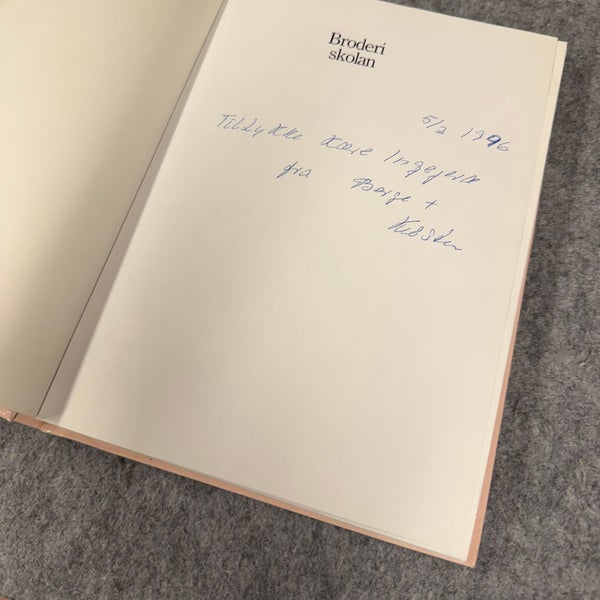 Broderi
skolan
5/2 1996
Tillykke Kære Ingejerd
fra Børge +
Kirsten